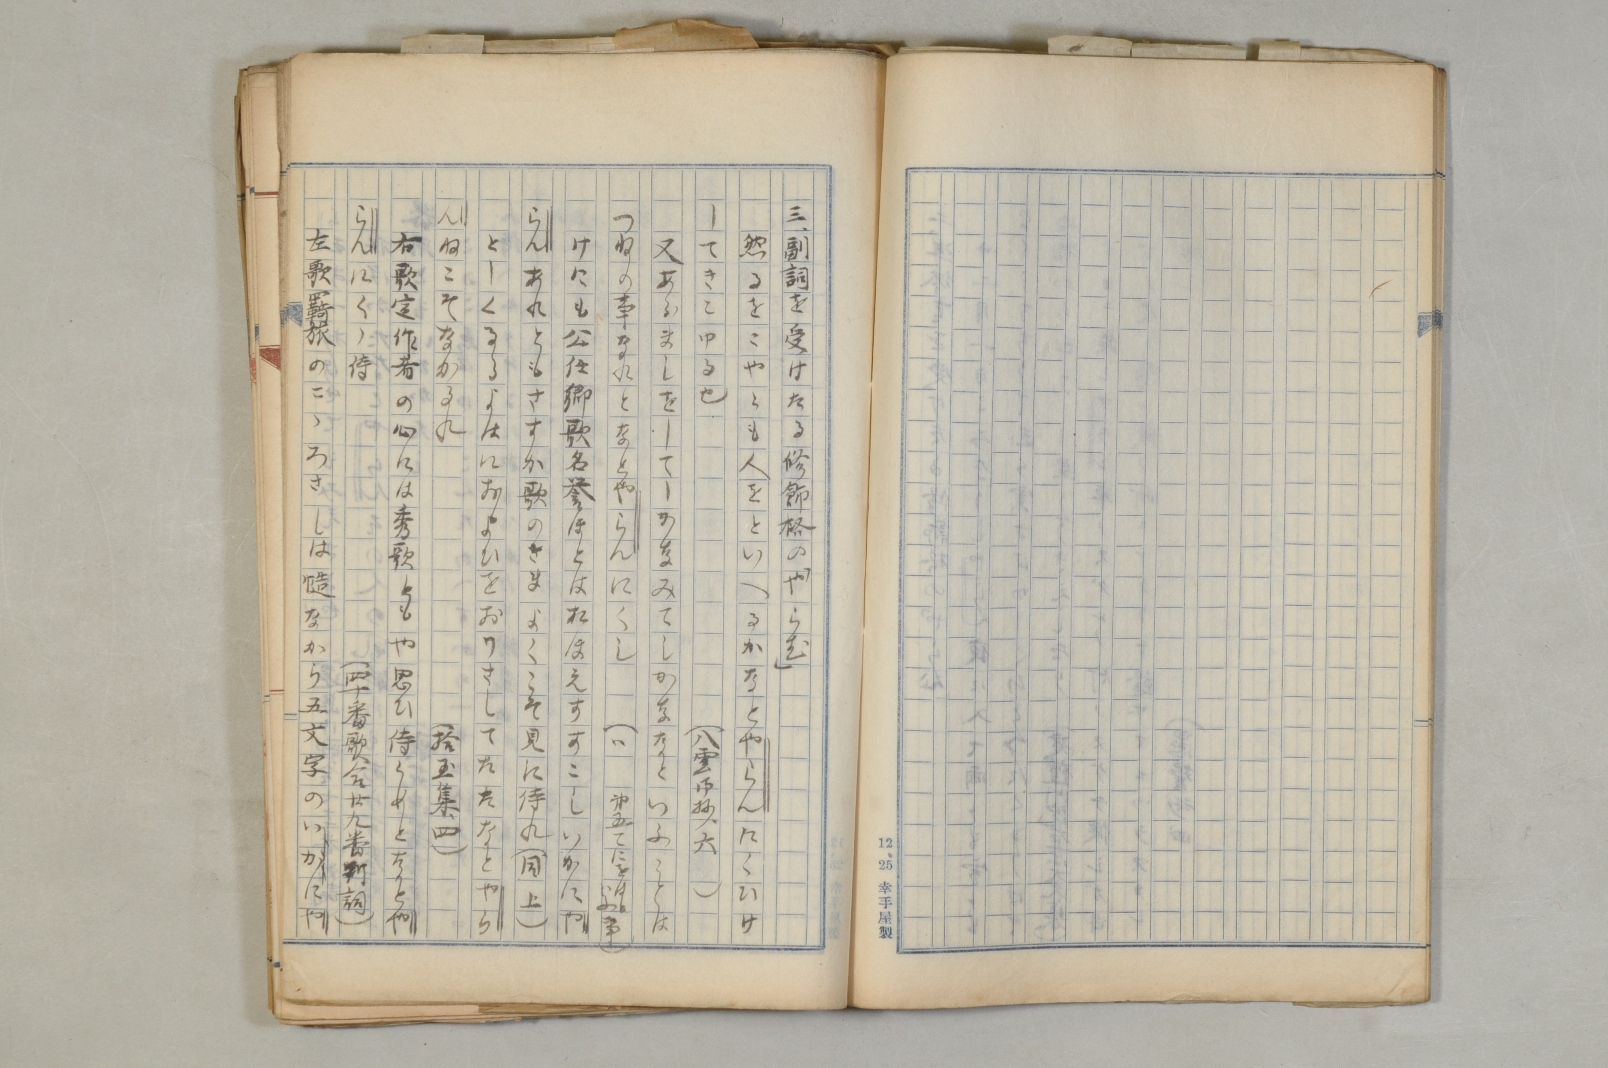 三、副詞を受けたる修飾格の「やらむ」
然るをこやくも人をといへるかなとやらんにくひけ
してきこゆる也
（八雲御抄、六）
又あらましをしてしかなみてしかななといふことは
つねの事なれとなとやらんにくし
（〃
けにも公任卿歌名誉ほとはおほえすすこしいかにや
らんあれともさすか歌のさまよくこそ見に侍れ（同上）
としくるるよはにおよひをおりさしてたたなとやら
んねこそなかるれ
（拾玉集、四）
右歌定作者の心には秀歌ともや思ひ侍らめとなにとや
らんにくゝ侍
（四十番歌合廿九番判詞）
左歌羇旅のこゝろさしは慥なから五文字のいかにや
12、25 幸手屋製